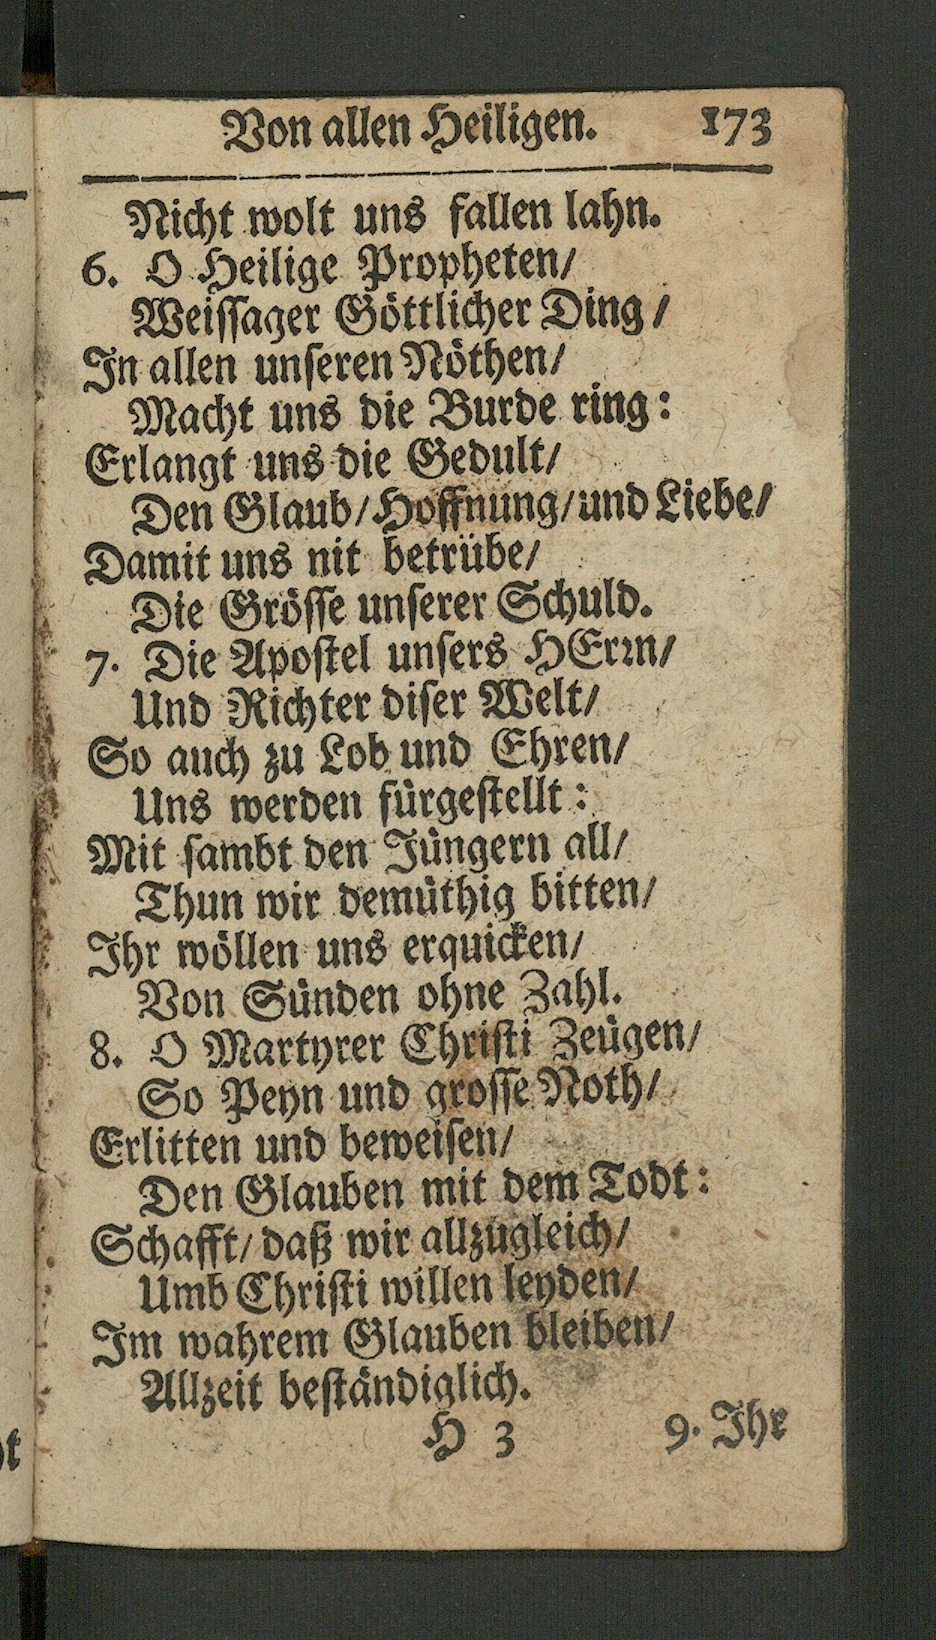 Von allen Heiligen. 173
Nicht wolt uns fallen lahn.
6. O Heilige Propheten/
Weissager Göttlicher Ding/
In allen unseren Nöthen/
Macht uns die Burde ring:
Erlangt uns die Gedult/
Den Glaub/Hoffnung/und Liebe/
Damit uns nit betrübe/
Die Grösse unserer Schuld.
7. Die Apostel unsers HErrn/
Und Richter diser Welt/
So auch zu Lob und Ehren/
Uns werden fürgestellt:
Mit sambt den Jüngern all/
Thun wir demüthig bitten/
Ihr wöllen uns erquicken/
Von Sünden ohne Zahl.
8. O Martyrer Christi Zeügen/
So Peyn und grosse Noth/
Erlitten und beweisen/
Den Glauben mit dem Todt:
Schafft/daß wir allzugleich/
Umb Christi willen leyden/
Im wahrem Glauben bleiben/
Allzeit beständiglich.
H 3 9. Ihr